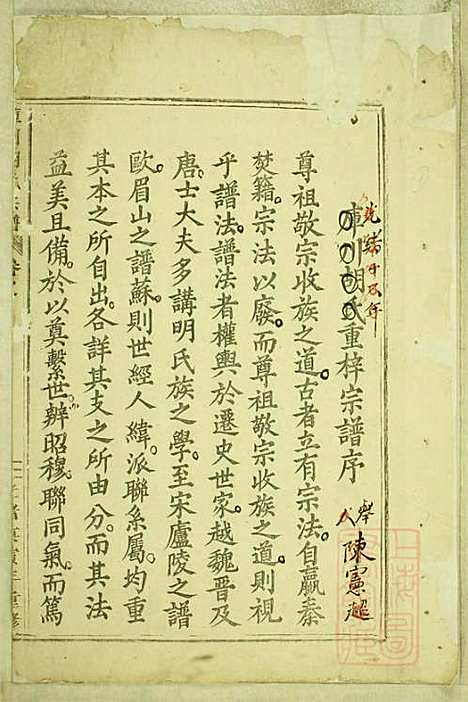 庫川胡氏重梓宗譜序
光緒
年
舉人陳憲超
尊祖敬宗收族之道古者立有宗法自嬴秦
焚籍宗法以廢而尊祖敬宗收族之道則視
乎譜法譜法者權輿於遷史世家越魏晉及
唐士大夫多講明氏族之學至宋廬陵之譜
歐眉山之譜蘇則世經人緯派聯系屬均重
其本之所自出各詳其支之所由分而其法
益美且備於以奠繫世辨昭穆聯同氣而篤